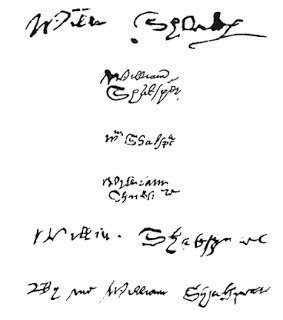 Willm Shakp
William
Shakspēr
Wm Shakspē
William
Shakspere
Willm Shakspere
By me William Shakspeare